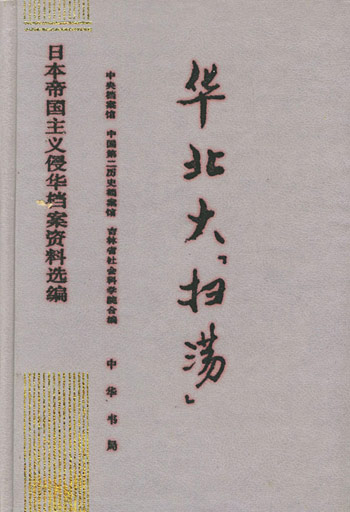 华北大「扫荡」
中央档案馆 中国第二历史档案馆 吉林省社会科学院合编
中华书局
日本帝国主义侵华档案资料选编